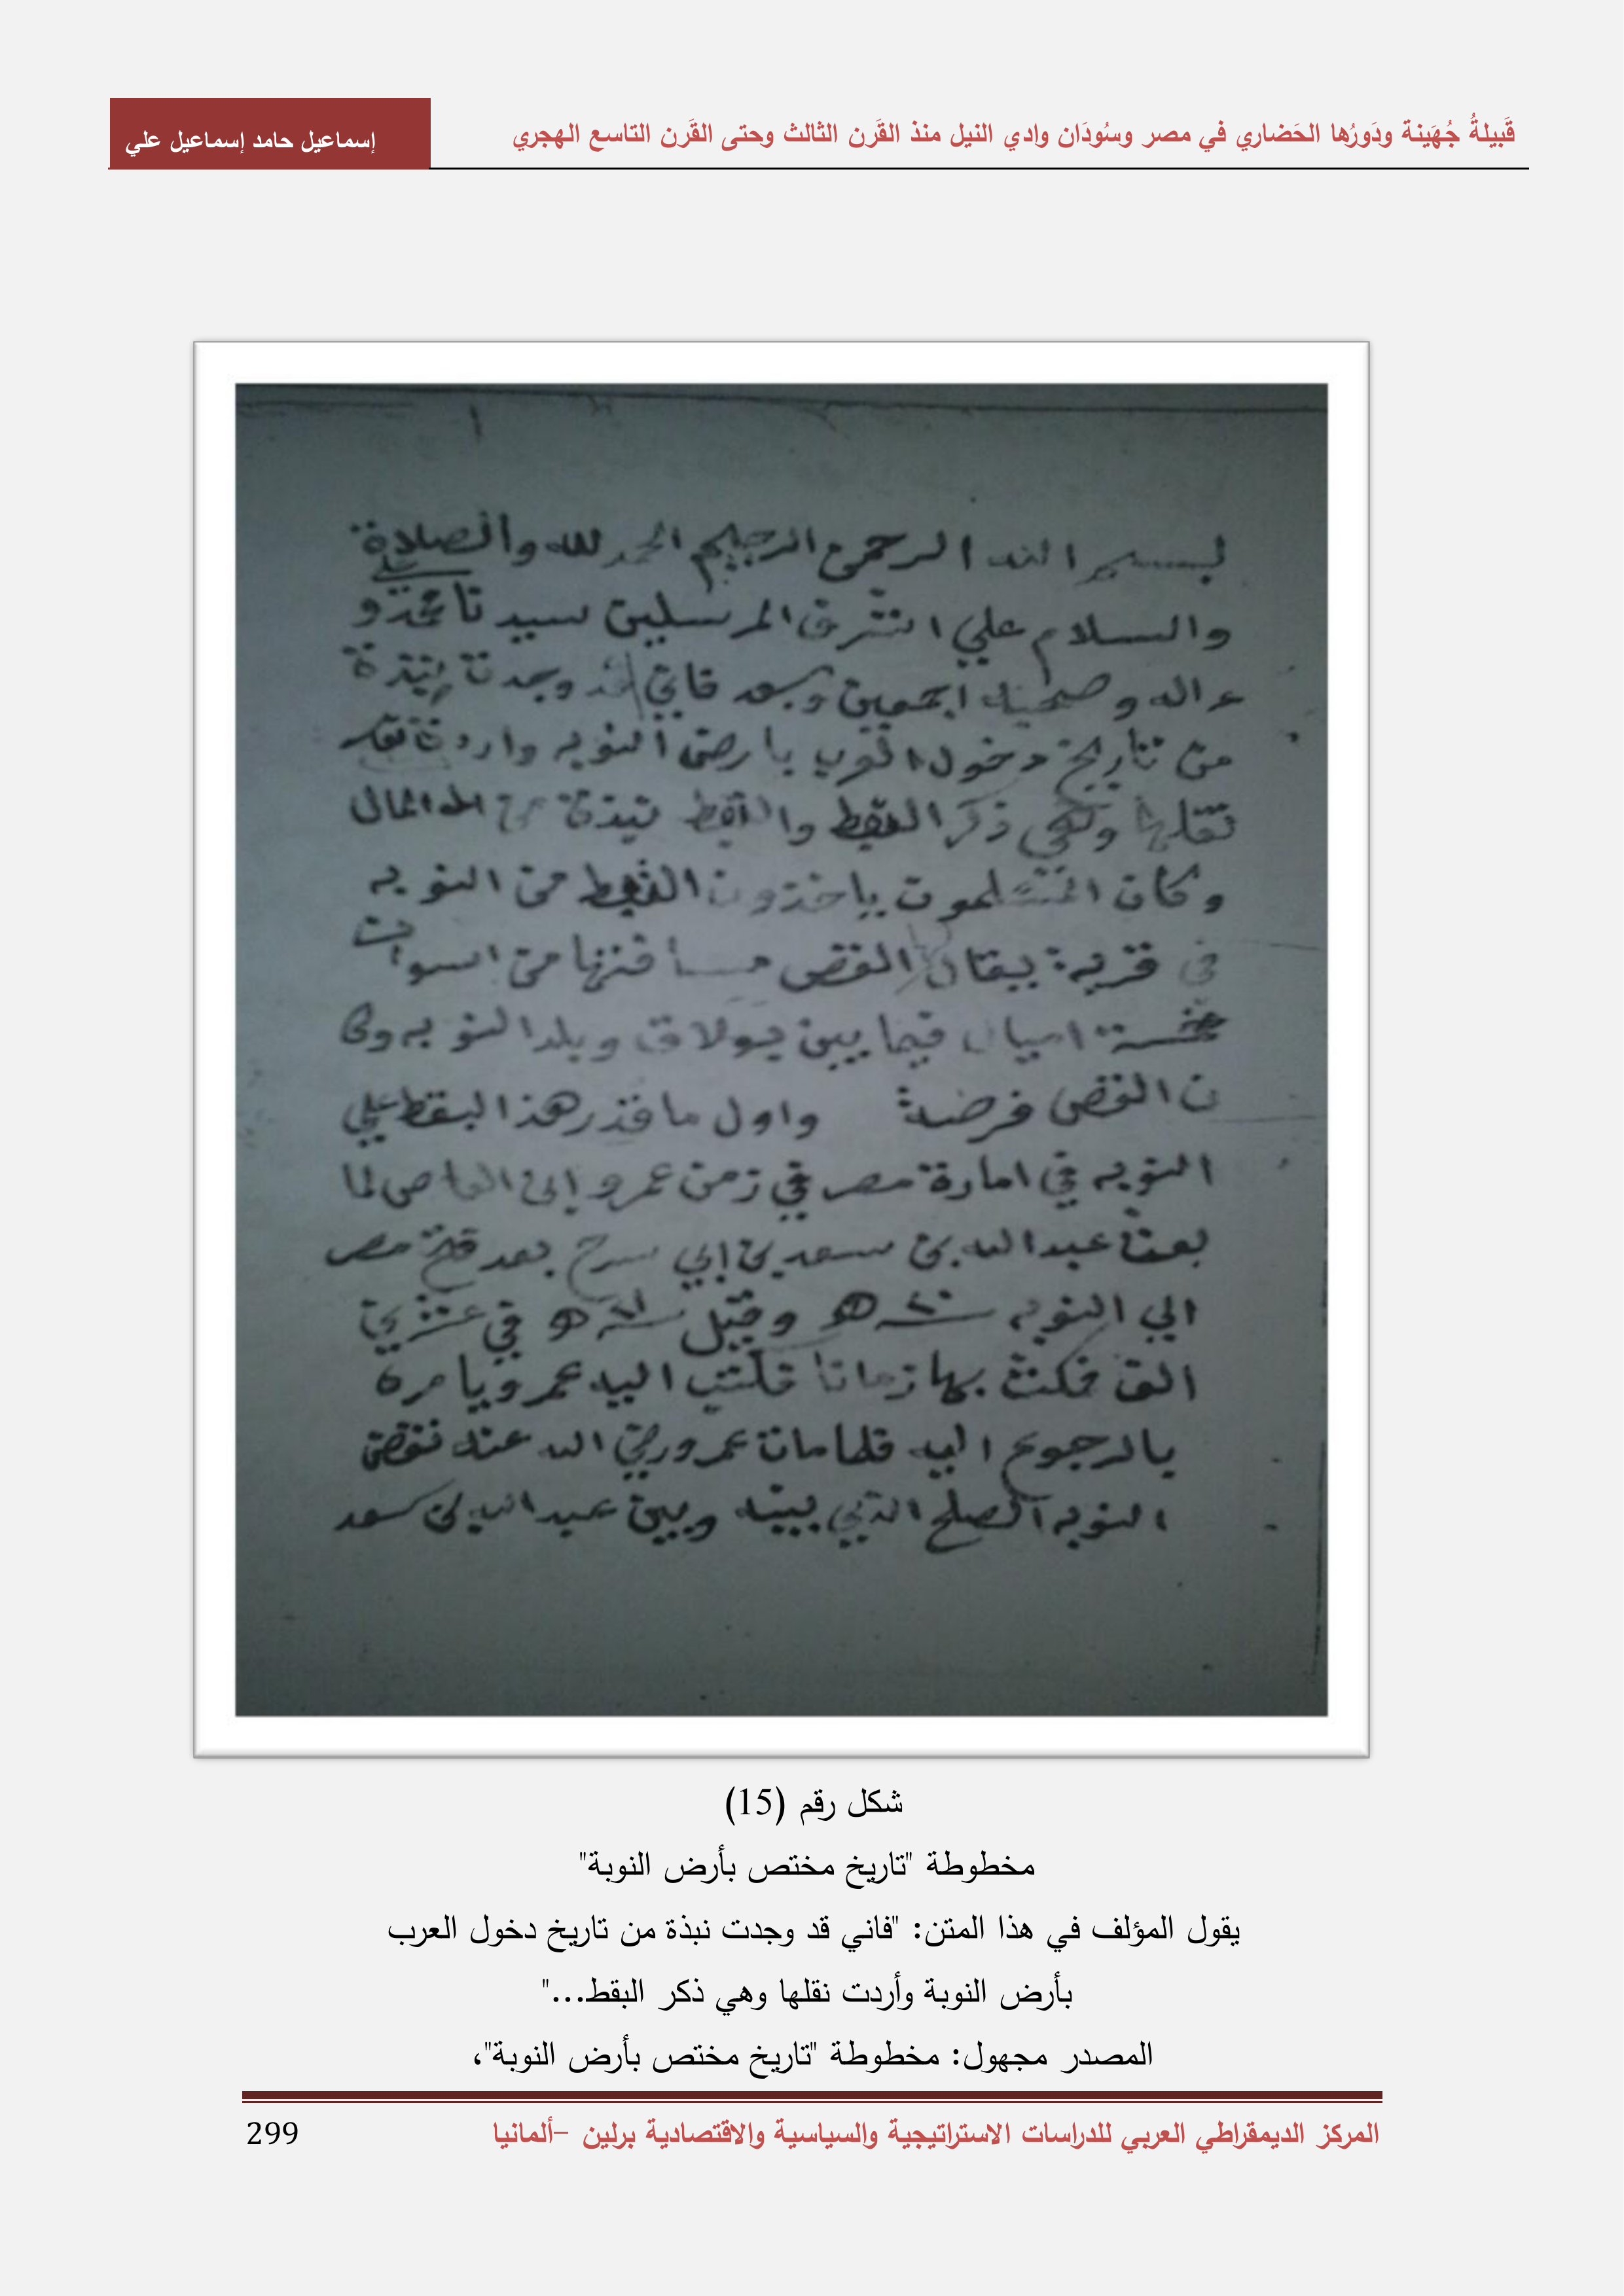 قَبيلةُ جُهَينة ودَورُها الحَضاري في مصر وسُودَان وادي النيل منذ القَرن الثالث وحتى القَرن التاسع الهجري
إسماعيل حامد إسماعيل علي
بسم الله الرحمن الرحيم الحمد لله والصلاة
والسلام علي اشرف المرسلين سيدنا محمد و
علي
ءاله وصحبه اجمعين وبعد فاني قد وجدت نبذة
من تاريخ دخول العرب بارض النوبه واردت
نقلها وهي ذكر البقط والبقط نبذة من المال
وكان المسلمون ياخذون البقط من النوبه
في قرية يقال القصر مسافتها من اسوان
خمسة اميال فيما بين بولاق وبلد النوبه وكا
ن القصر فرضة واول ما قدر هذا البقط علي
النوبه في امارة مصر في زمن عمرو ابن العاص لما
بعث عبد الله بن سعد بن ابي سرح بعد فتح مصر
الي النوبه سنة ٢٠ ه وقيل سنة ٢١ ه في عشرين
الف فمكث بها زمانا فكتب اليه عمرو يامره
بالرجوع اليه فلما مات عمرو رضي الله عنه نقض
النوبه الصلح الذي بينه وبين عبد الله بن سعد
شكل رقم (15)
مخطوطة "تاريخ مختص بأرض النوبة"
يقول المؤلف في هذا المتن: "فاني قد وجدت نبذة من تاريخ دخول العرب
بأرض النوبة وأردت نقلها وهي ذكر البقط..."
المصدر مجهول: مخطوطة "تاريخ مختص بأرض النوبة"،
المركز الديمقراطي العربي للدراسات الاستراتيجية والسياسية والاقتصادية برلين –ألمانيا
299